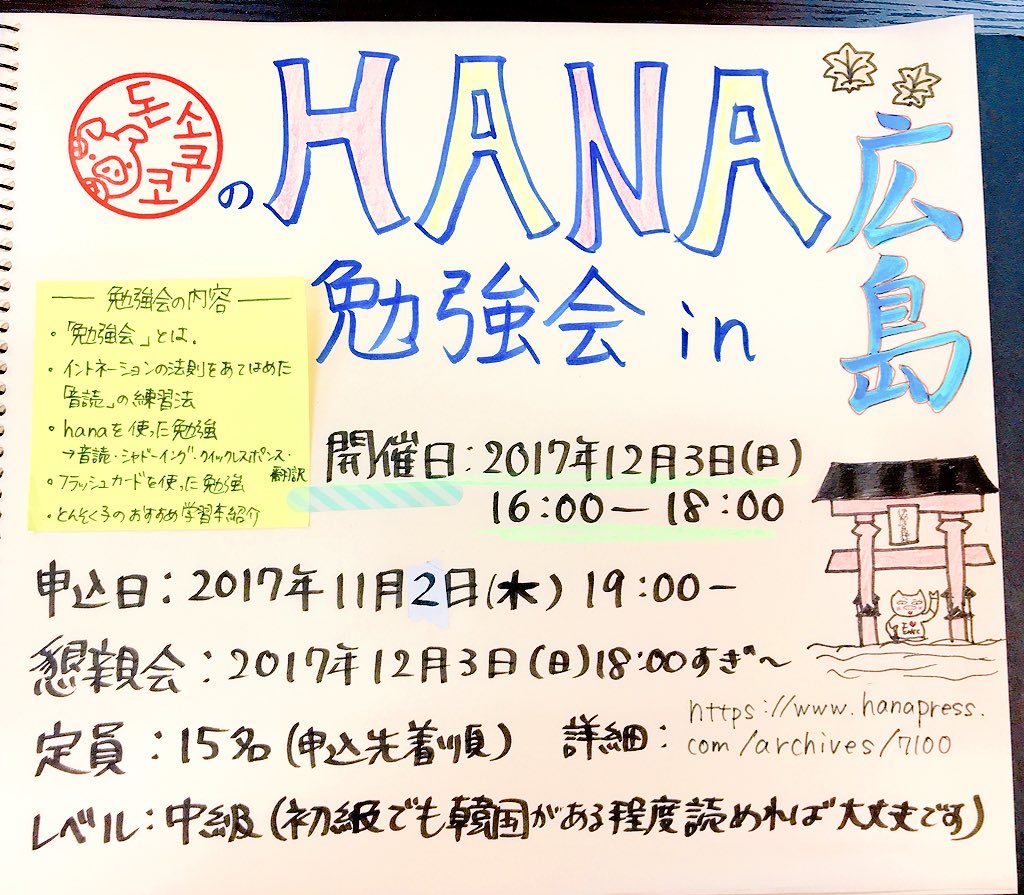 돈소쿠코
の HANA
勉強会 in
広島
― 勉強会の内容 ―
・「勉強会」とは。
・イントネーションの法則をあてはめた
「音読」の練習法
・hanaを使った勉強
→音読・シャドーイング・クイックレスポンス・
翻訳
・フラッシュカードを使った勉強
・とんそく子のおすすめ学習本紹介
開催日：2017年12月3日(日)
16:00ー18:00
申込日：2017年11月2日(木) 19:00ー
懇親会：2017年12月3日(日)18:00すぎ〜
定員：15名(申込先着順)
詳細：
https://www.hanapress.
com/archives/7100
レベル：中級(初級でも韓国がある程度読めれば大丈夫です)